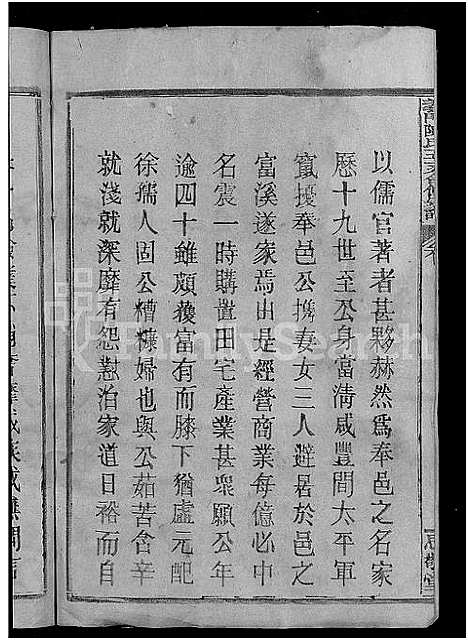 以儒官著者甚夥赫然為奉邑之名家
歷十九世至公身當清咸豐間太平軍
竄擾奉邑公攙妻女三人避居於邑之
富溪遂家焉由是經營商業每億必中
名震一時購置田宅產業甚衆願公年
逾四十雖頗獲富有而膝下猶虛元配
徐孺人固公糟糠婦也與公茹苦含辛
就淺就深靡有怨懟洎家道日裕而自
FamilySearch